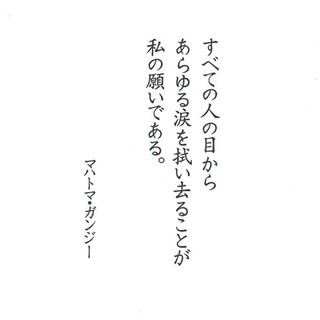 すべての人の目から
あらゆる涙を拭い去ることが
私の願いである。
マハトマ・ガンジー